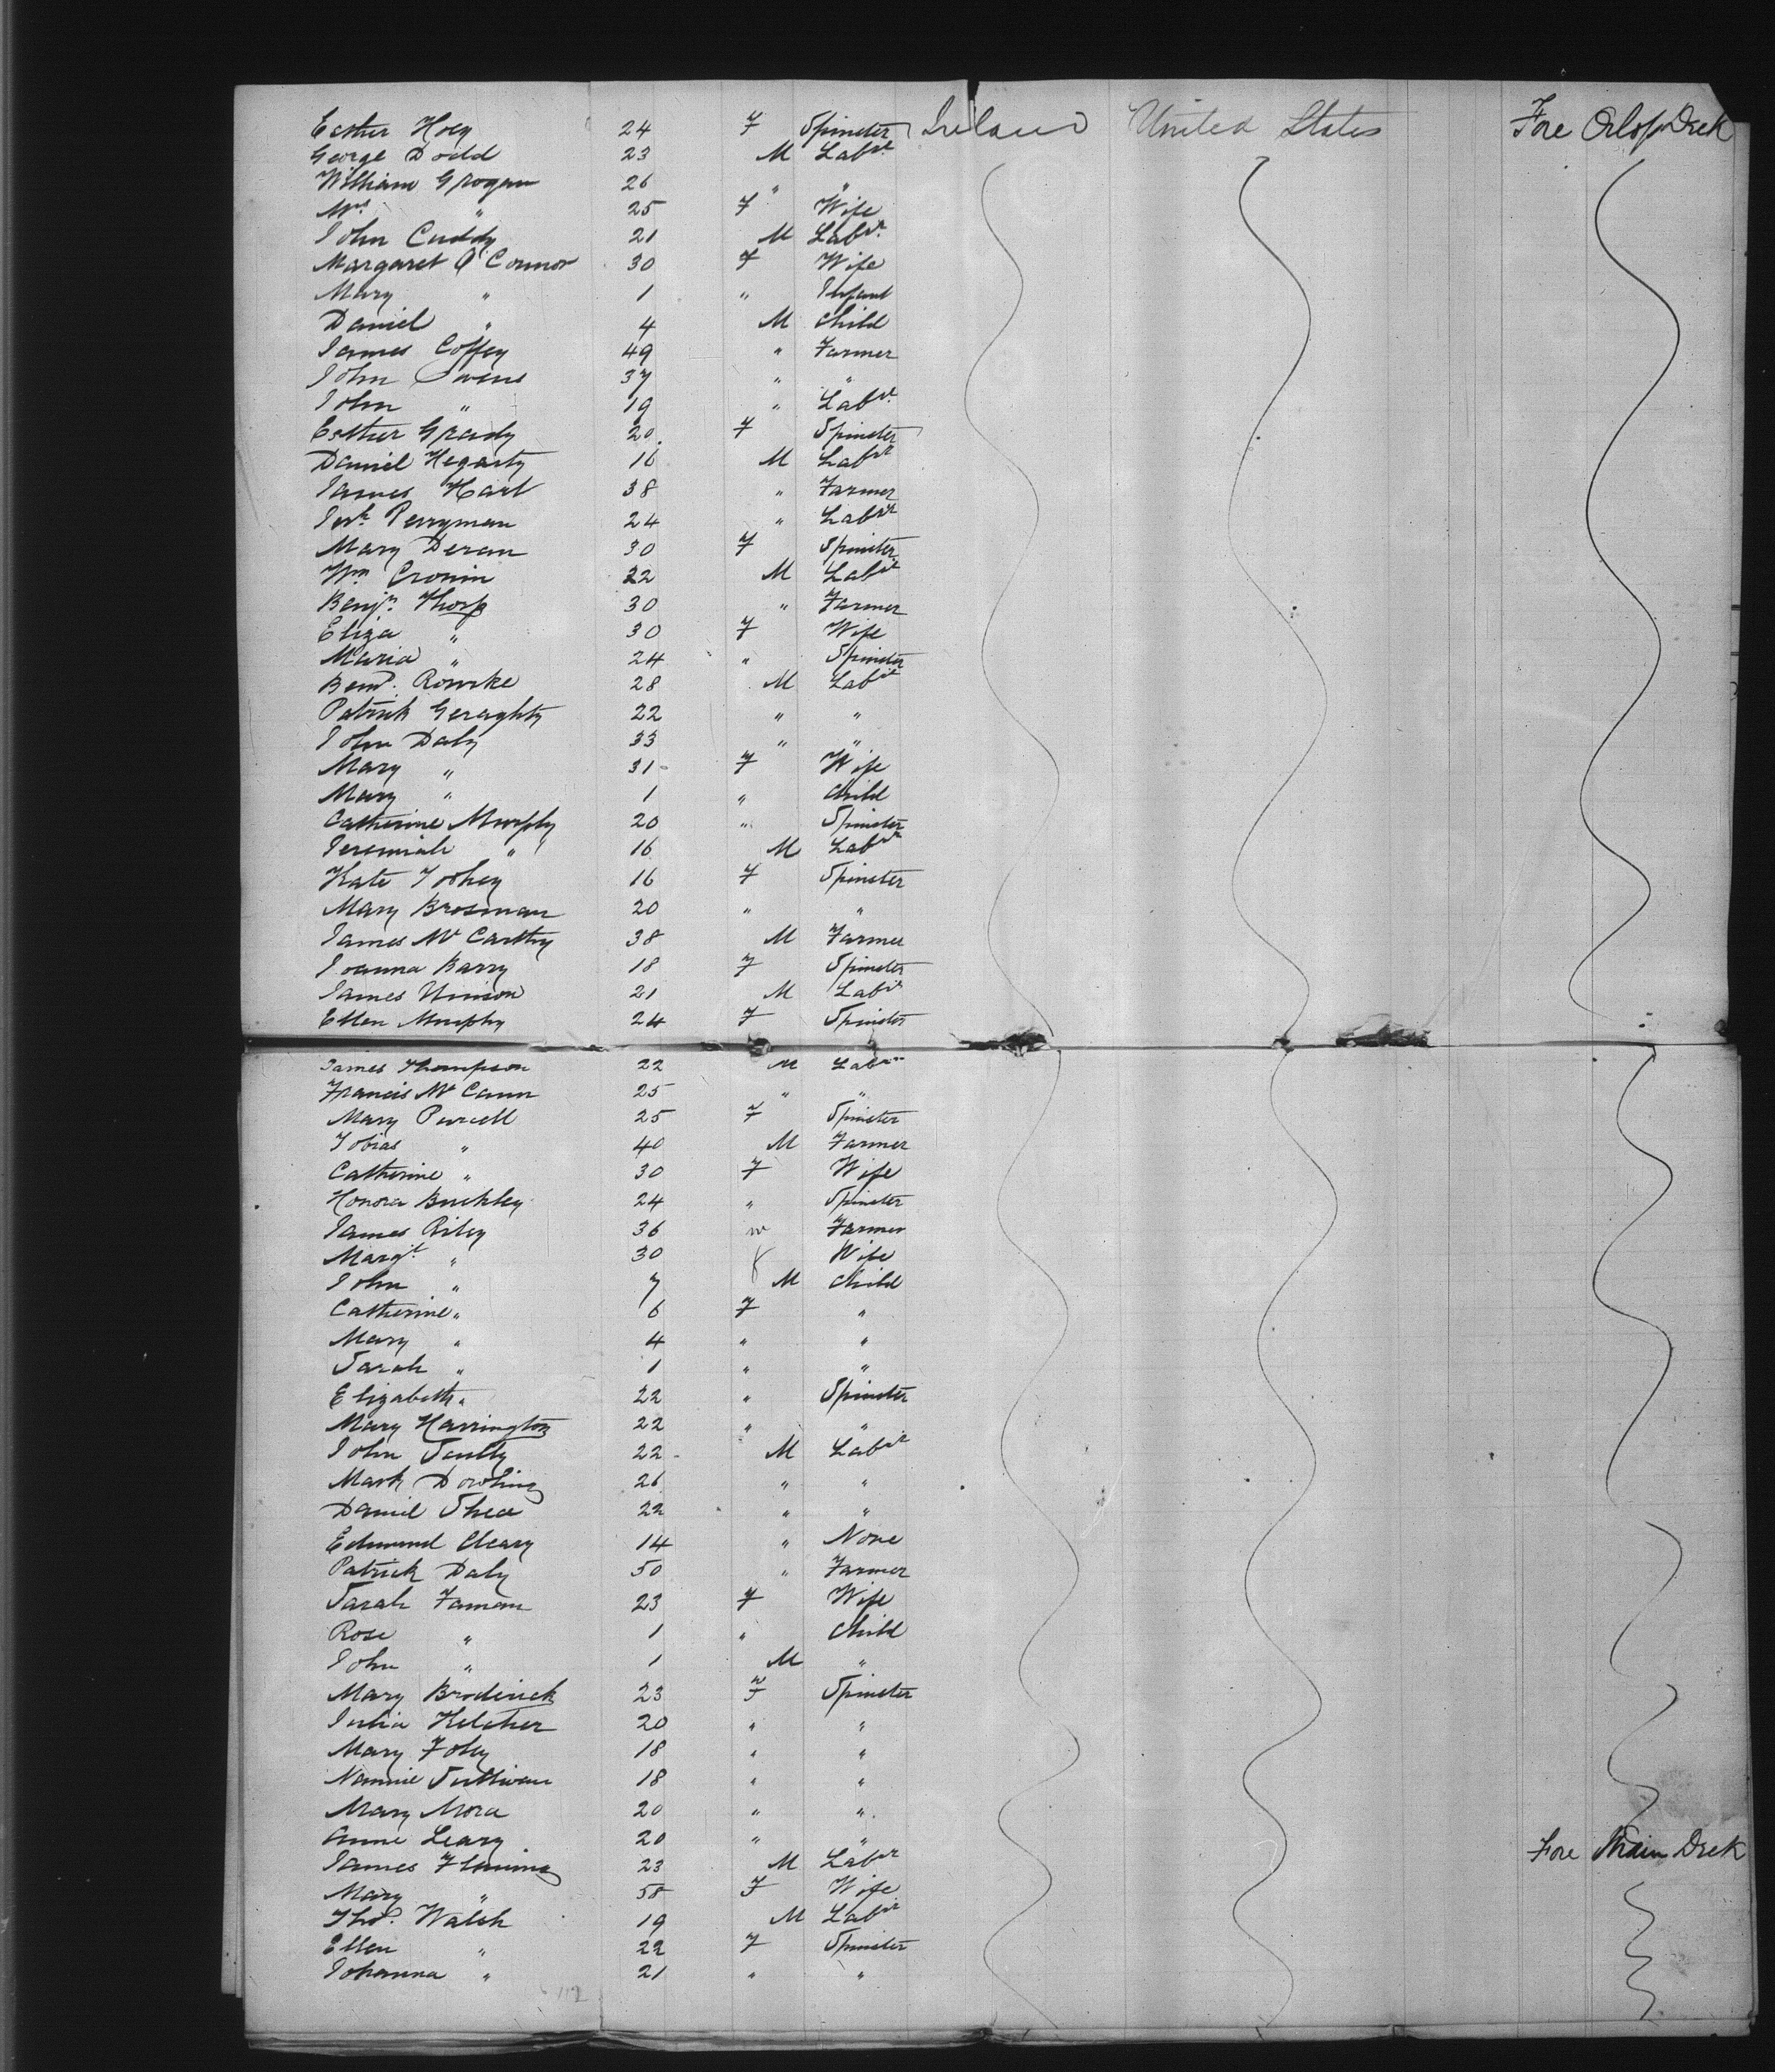 Esther Hoey 24 F Spinster Ireland United States Fore Orlop Deck
George Dodd 23 M Labr.
William Grogan 26 " "
Mrs " 25 F Wife
John Cuddy 21 M Labr.
Margaret O'Connor 30 F Wife
Mary " 1 " Infant
Daniel " 4 M Child
James Coffey 49 " Farmer
John Owens 37 " "
John " 19 " Labr.
Esther Grady 20 F Spinster
Daniel Hegarty 16 M Labr
James Hart 38 " Farmer
Perryman 24 " Labr
Mary Deran 30 F Spinster
Wm Cronin 22 M Labr
Benjn. Thorp 30 " Farmer
Eliza " 30 F Wife
Maria " 24 " Spinster
Bernd. Rourke 28 M Labr
Patrick Geraghty 22 " "
John Daly 33 " "
Mary " 31 F Wife
Mary " 1 " Child
Catherine Murphy 20 " Spinster
Jeremiah " 16 M Labr
Kate Toohey 16 F Spinster
Mary Brosnan 20 " "
James McCarthy 38 M Farmer
Joanna Barry 18 F Spinster
James 21 M Labr
Ellen Murphy 24 F Spinster
James Thompson 22 M Labr
Francis McCann 25 " "
Mary Purcell 25 F Spinster
Tobias " 40 M Farmer
Catherine " 30 F Wife
Honora Buckley 24 " Spinster
James Riley 36 m Farmer
Margt. " 30 f Wife
John " 7 M Child
Catherine " 6 F "
Mary " 4 " "
Sarah " 1 " "
Elizabeth " 22 " Spinster
Mary Harrington 22 " "
John Scully 22 M Labr
Mark Dowling 26 " "
Daniel Shea 22 " "
Edmund Cleary 14 " None
Patrick Daly 50 " Farmer
Sarah 23 F Wife
Rose " 1 " Child
John " 1 M "
Mary Broderick 23 F Spinster
Julia Kelcher 20 " "
Mary Foley 18 " "
Nannie Sullivan 18 " "
Mary Mora 20 " "
Anne Leary 20 " " Fore Main Deck
James Fleming 23 M Labr
Mary " 58 F Wife
Thos. Walsh 19 M Labr
Ellen " 22 F Spinster
Johanna " 21 " "